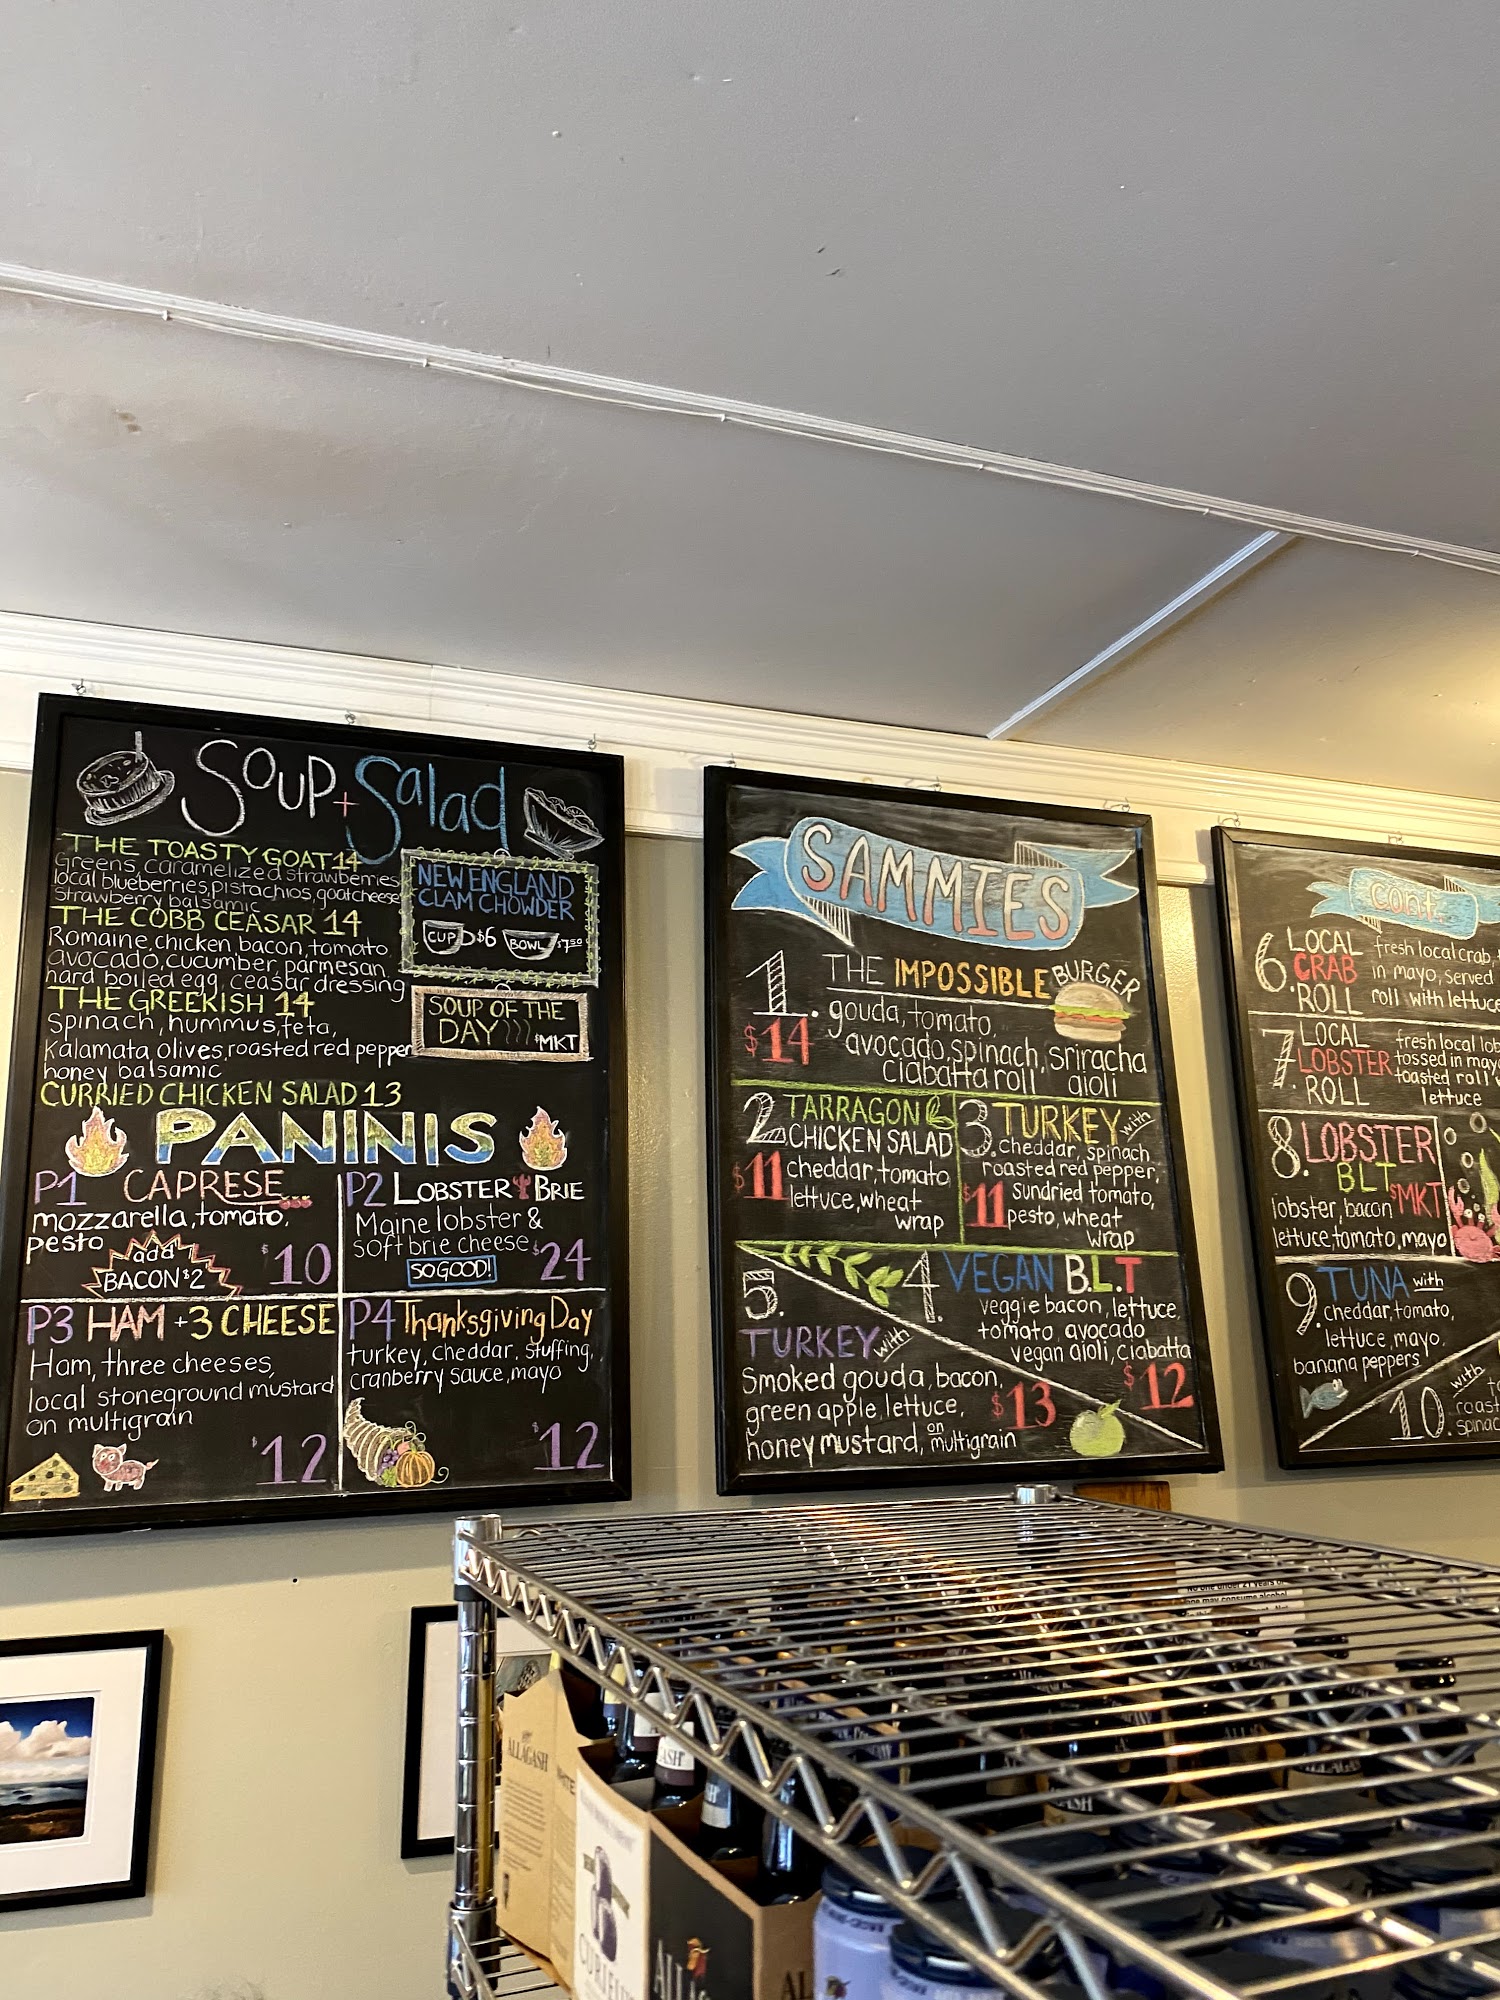 Soup + Salad
THE TOASTY GOAT 14
Greens, caramelized strawberries
local blueberries, pistachios, goatcheese
strawberry balsamic
THE COBB CEASAR 14
Romaine, chicken, bacon, tomato
avocado, cucumber, parmesan
hard boiled egg, ceasar dressing
THE GREEKISH 14
Spinach, hummus, feta,
Kalamata olives, roasted red pepper
honey balsamic
CURRIED CHICKEN SALAD 13
NEW ENGLAND
CLAM CHOWDER
CUP $6 BOWL $7.50
SOUP OF THE
DAY $MKT
PANINIS
P1 CAPRESE
mozzarella, tomato,
pesto
add
BACON $2
$10
P2 LOBSTER BRIE
Maine lobster &
soft brie cheese
SO GOOD!
$24
P3 HAM + 3 CHEESE
Ham, three cheeses,
local stoneground mustard
on multigrain
$12
P4 Thanksgiving Day
turkey, cheddar, stuffing,
cranberry sauce, mayo
$12
SAMMIES
1. THE IMPOSSIBLE BURGER
$14
gouda, tomato,
avocado, spinach, sriracha
ciabatta roll aioli
2. TARRAGON
CHICKEN SALAD
$11
cheddar, tomato
lettuce, wheat
wrap
3. TURKEY with
cheddar, spinach
roasted red pepper,
sundried tomato,
$11
pesto, wheat
wrap
4. VEGAN B.L.T
veggie bacon, lettuce,
tomato, avocado
vegan aioli, ciabatta
$12
5.
TURKEY with
Smoked gouda, bacon,
green apple, lettuce,
honey mustard, on multigrain
$13
cont.
6. LOCAL
CRAB
ROLL
fresh local crab,
in mayo, served
roll with lettuce
7. LOCAL
LOBSTER
ROLL
fresh local
tossed in mayo
toasted roll
lettuce
8. LOBSTER
BLT
$MKT
lobster, bacon
lettuce, tomato, mayo
9. TUNA with
cheddar, tomato,
lettuce, mayo,
banana peppers
10. with
No one under 21 years of
age may consume alcohol
ALLAGASH
WHITE